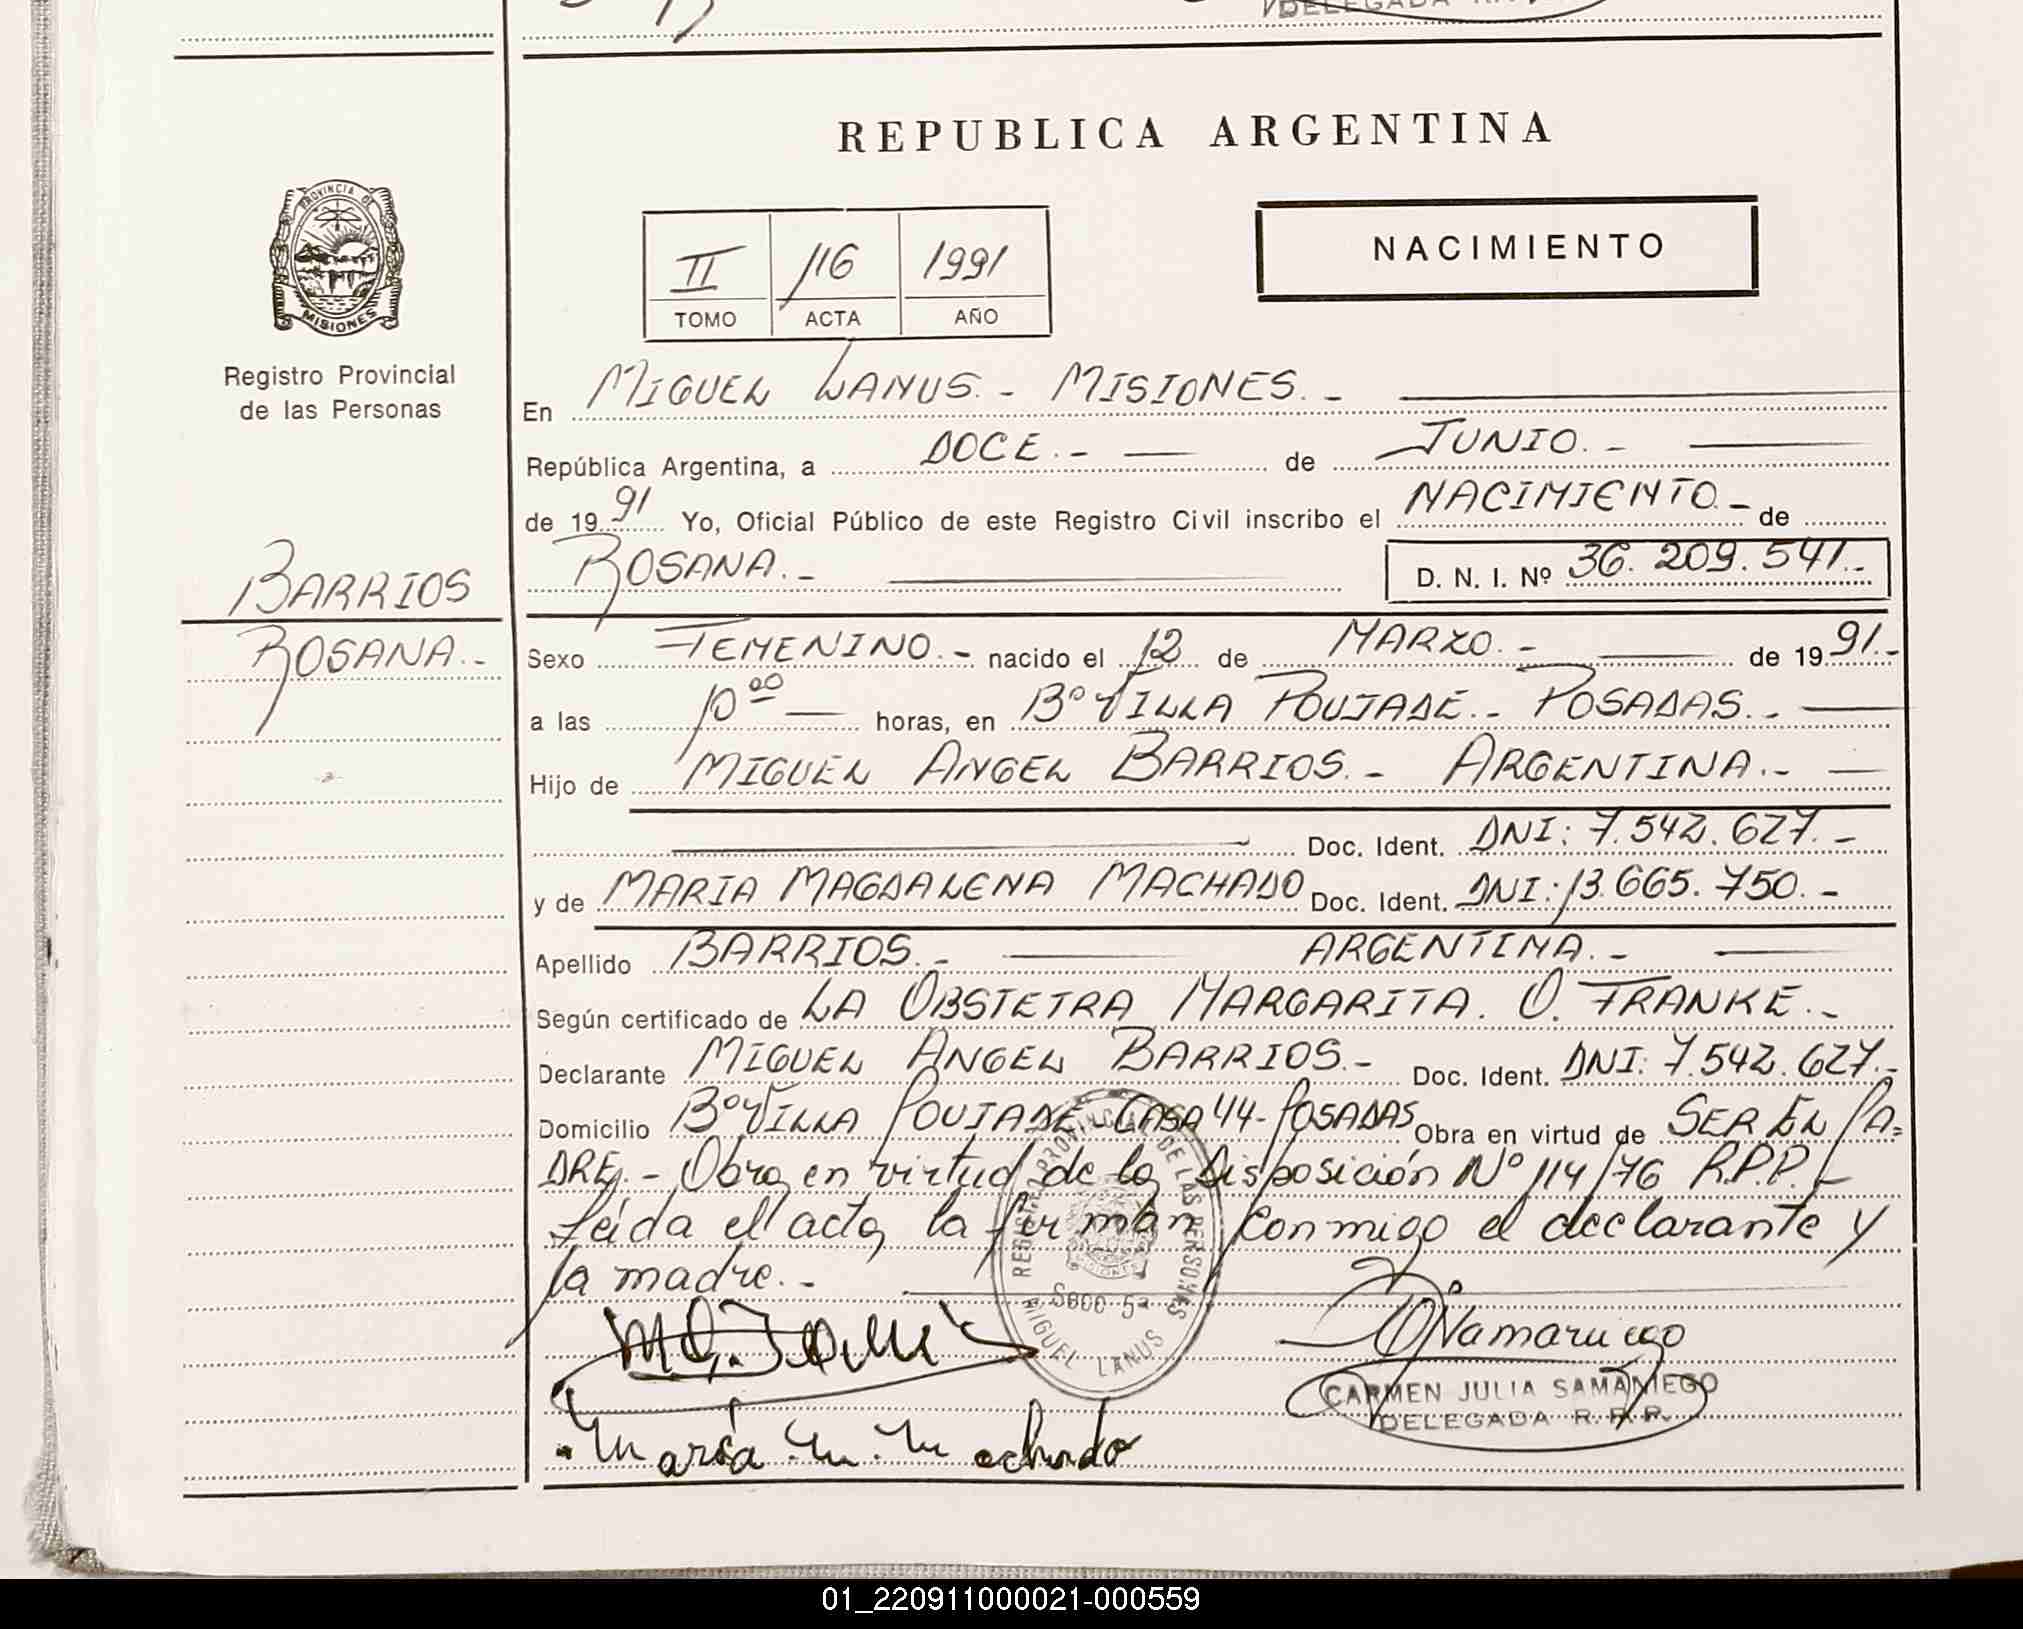 REPUBLICA ARGENTINA
PROVINCIA DE
MISIONES
Registro Provincial
de las Personas
II 116 1991
TOMO ACTA AÑO
NACIMIENTO
En MIGUEL LANUS.- MISIONES.-
República Argentina, a DOCE.- de JUNIO.-
de 1991 Yo, Oficial Público de este Registro Civil inscribo el NACIMIENTO- de
ROSANA.- D. N. I. Nº 36.209.541.-
BARRIOS
ROSANA.-
Sexo FEMENINO.- nacido el 12 de MARZO.- de 1991.-
a las 10⁰⁰ horas, en Bº VILLA POUJADE.- POSADAS.-
Hijo de MIGUEL ANGEL BARRIOS.- ARGENTINA.-
Doc. Ident. DNI: 7.542.627.-
y de MARIA MAGDALENA MACHADO Doc. Ident. DNI: 13.665.750.-
Apellido BARRIOS.- ARGENTINA.-
Según certificado de LA OBSTETRA MARGARITA. O. FRANKE.-
Declarante MIGUEL ANGEL BARRIOS.- Doc. Ident. DNI: 7.542.627.-
Domicilio Bº VILLA POUJADE-CASA 44-POSADAS Obra en virtud de SER EL PA=
DRE.- Obra en virtud de la Disposición Nº 114/76 R.P.P.-
Leída el acta, la firman conmigo el declarante y
la madre.-
REGISTRO PROVINCIAL DE LAS PERSONAS
Secc 5ª
MIGUEL LANUS
CARMEN JULIA SAMANIEGO
DELEGADA R.P.P.
María M. Machado
01_220911000021-000559